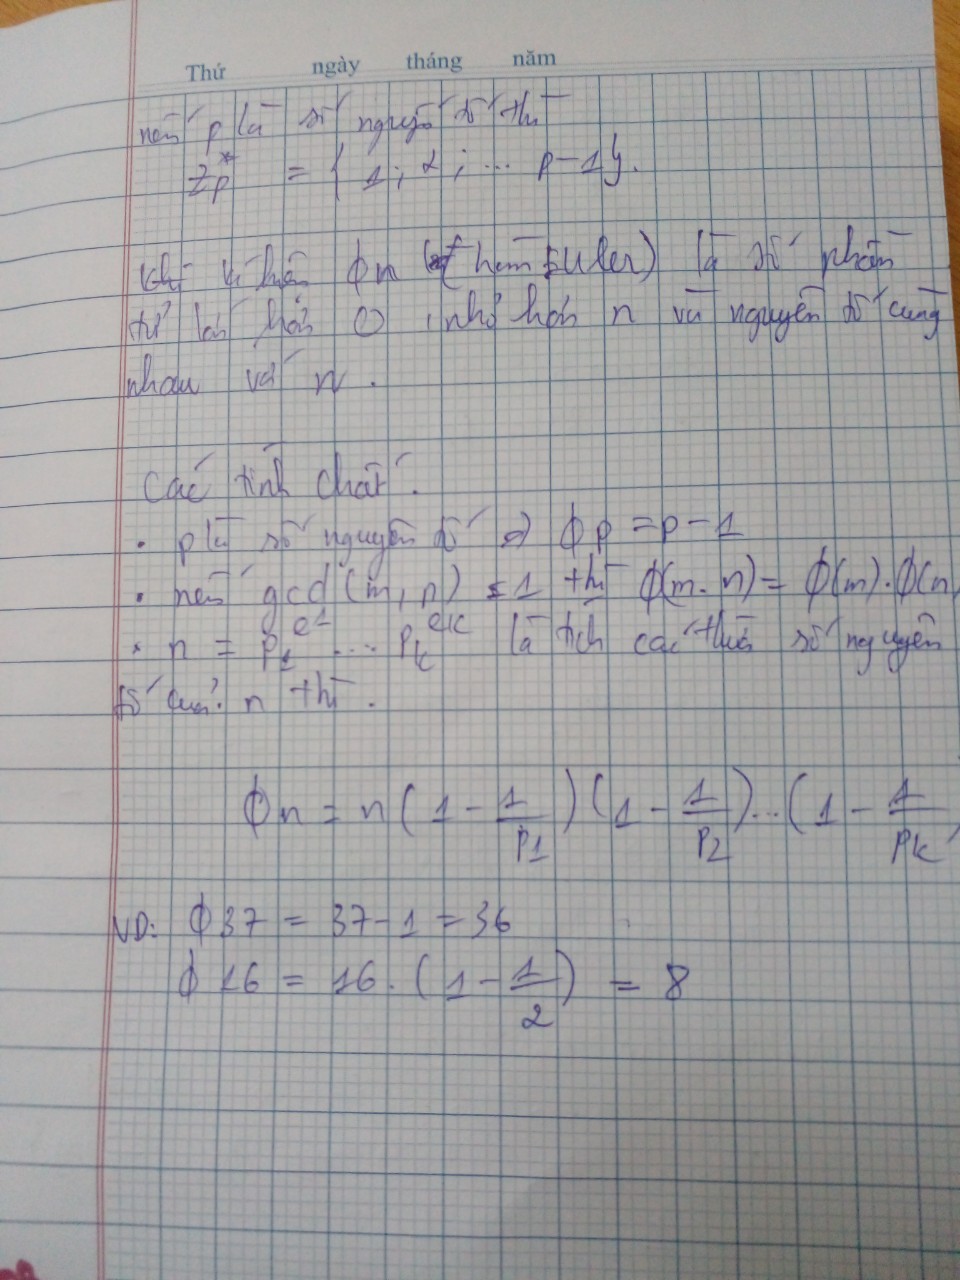 Thứ ngày tháng năm
nếu p là số nguyên tố thì
Zp* = { 1; 2; ... p-1}.
khi φn (hàm Euler) là số phần
tử lớn hơn 0, nhỏ hơn n và nguyên tố cùng
nhau với n.
Các tính chất.
• p là số nguyên tố => φp = p-1
• nếu gcd(m,n) = 1 thì φ(m.n) = φ(m).φ(n
• n = p1^e1 ... pk^ek là tích các thừa số nguyên
tố của n thì.
φn = n(1 - 1/p1)(1 - 1/p2)...(1 - 1/pk
VD: φ37 = 37-1 = 36
φ16 = 16.(1 - 1/2) = 8